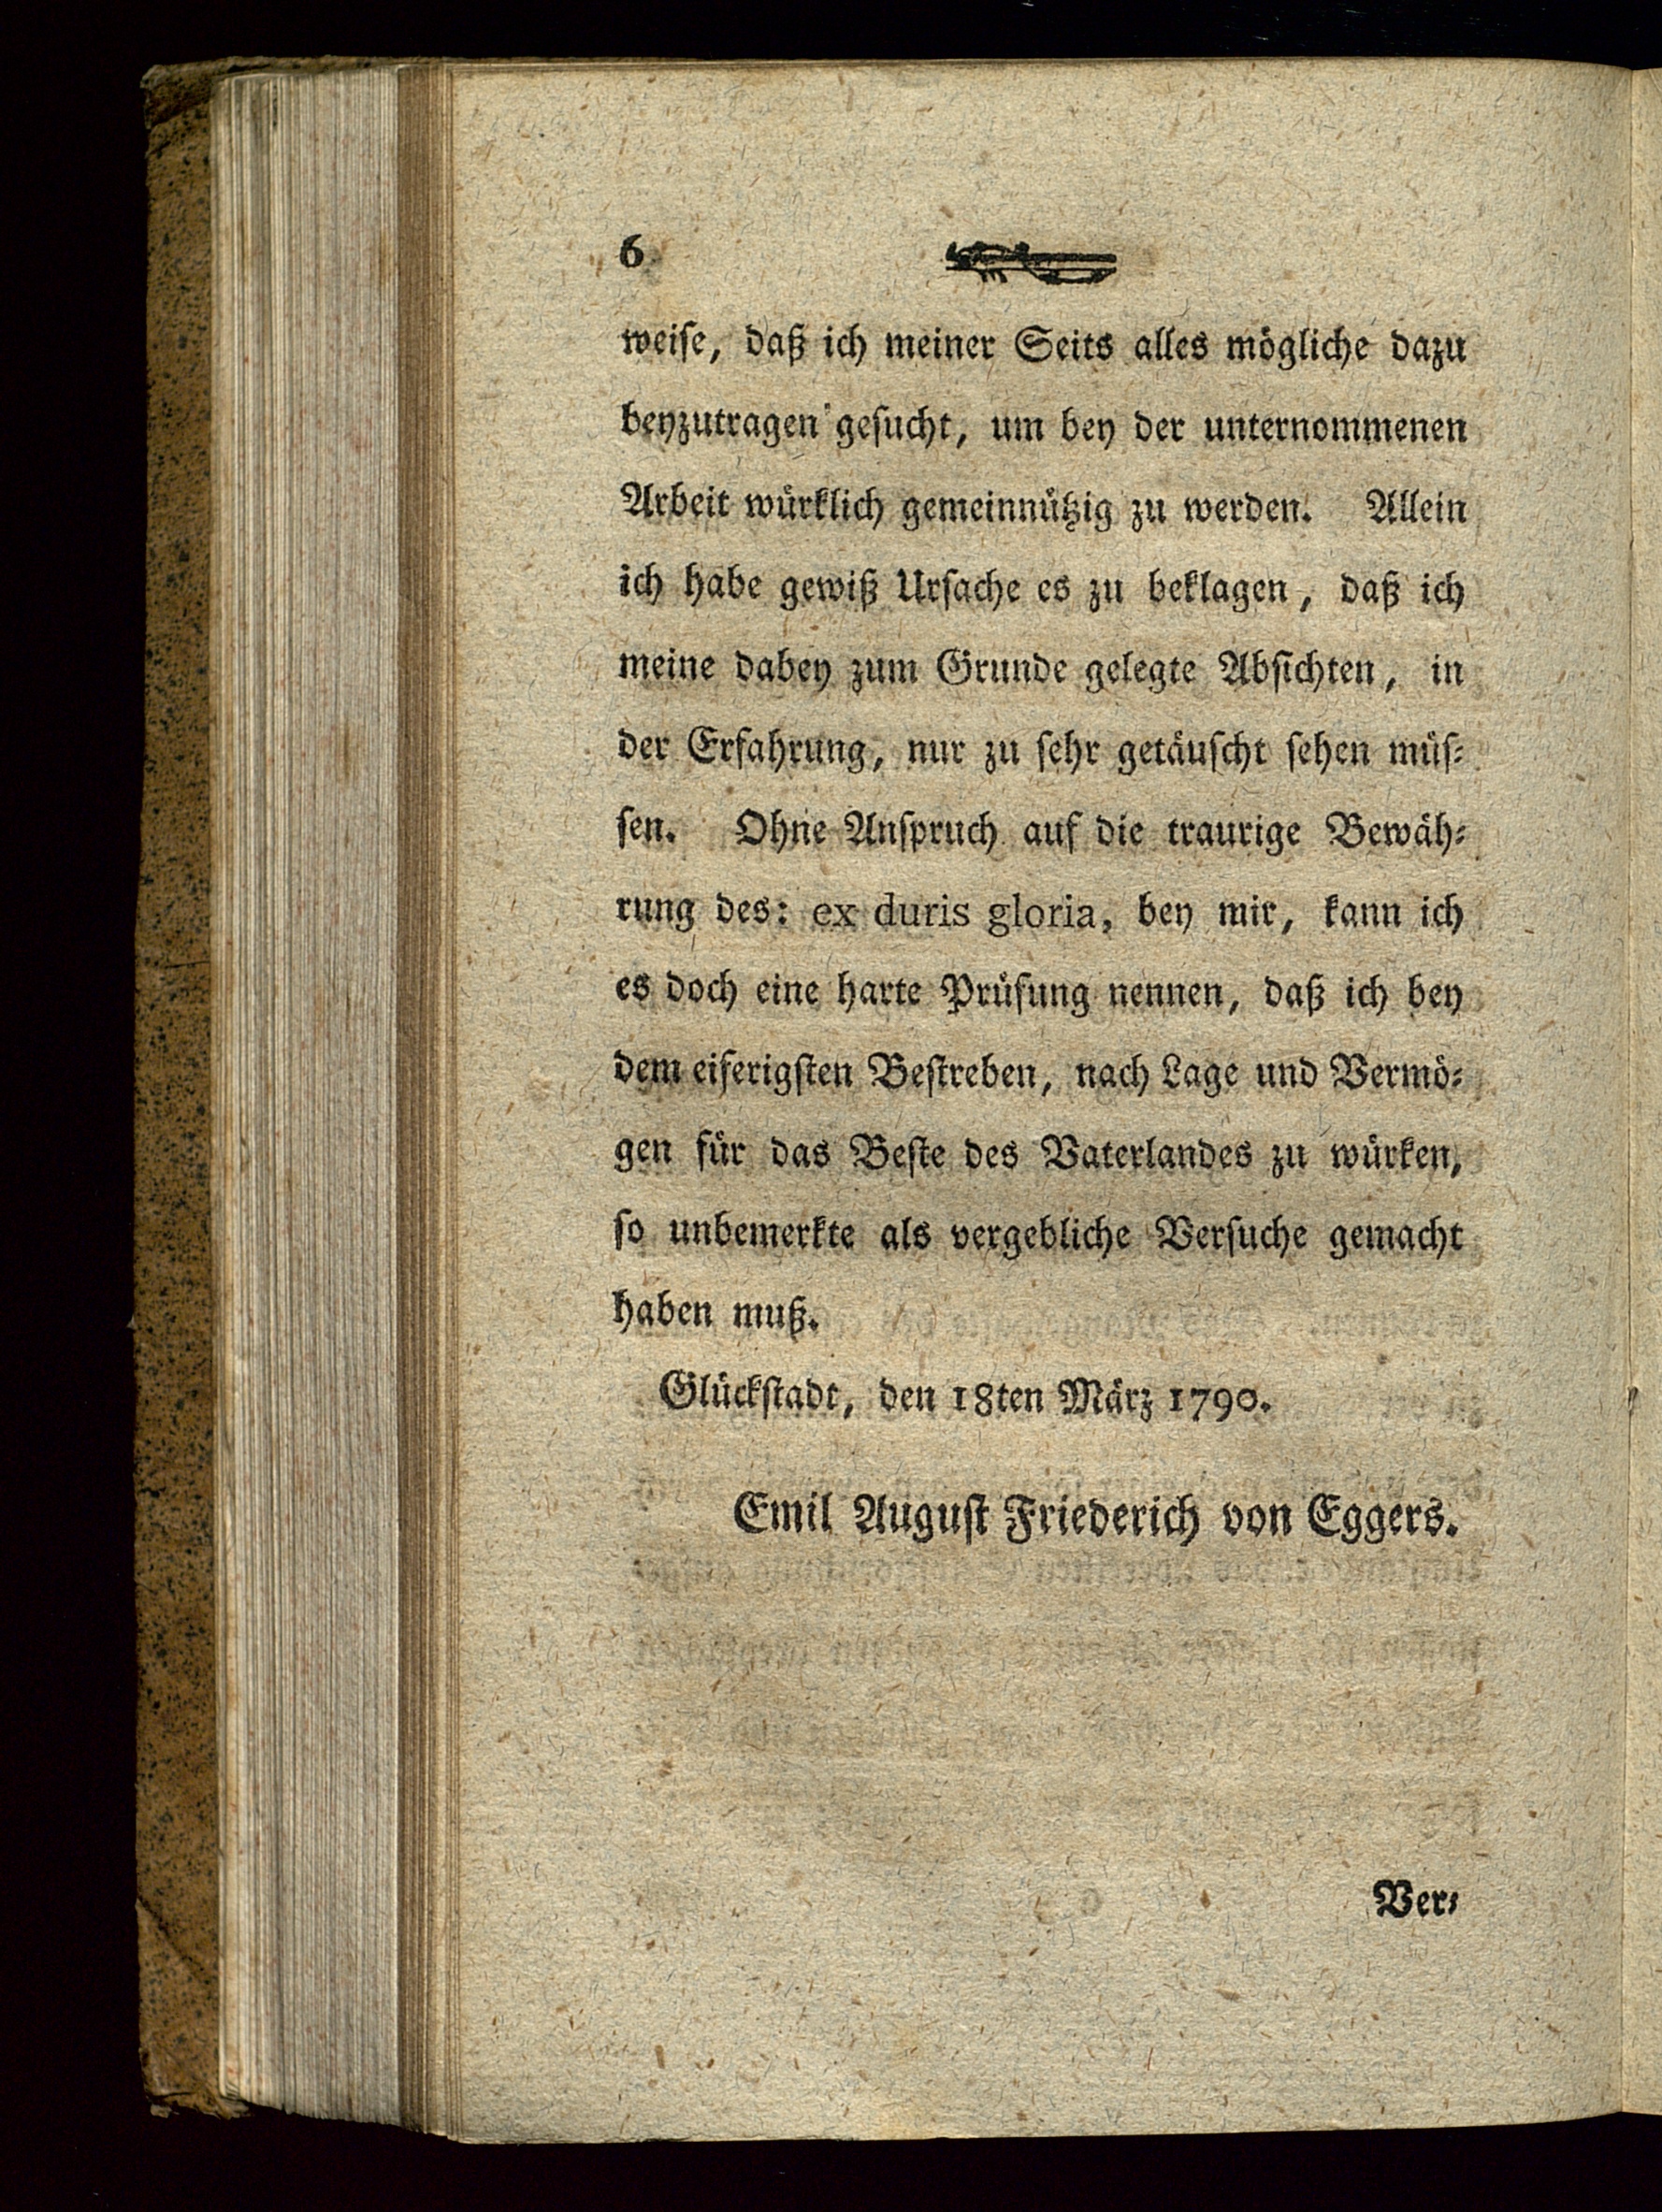 6
weise, daß ich meiner Seits alles mögliche dazu
beyzutragen gesucht, um bey der unternommenen
Arbeit würklich gemeinnützig zu werden. Allein
ich habe gewiß Ursache es zu beklagen, daß ich
meine dabey zum Grunde gelegte Absichten, in
der Erfahrung, nur zu sehr getäuscht sehen müs-
sen. Ohne Anspruch auf die traurige Bewäh-
rung des: ex duris gloria, bey mir, kann ich
es doch eine harte Prüfung nennen, daß ich bey
dem eiferigsten Bestreben, nach Lage und Vermö-
gen für das Beste des Vaterlandes zu würken,
so unbemerkte als vergebliche Versuche gemacht
haben muß.
Glückstadt, den 18ten März 1790.
Emil August Friederich von Eggers.
Ver-